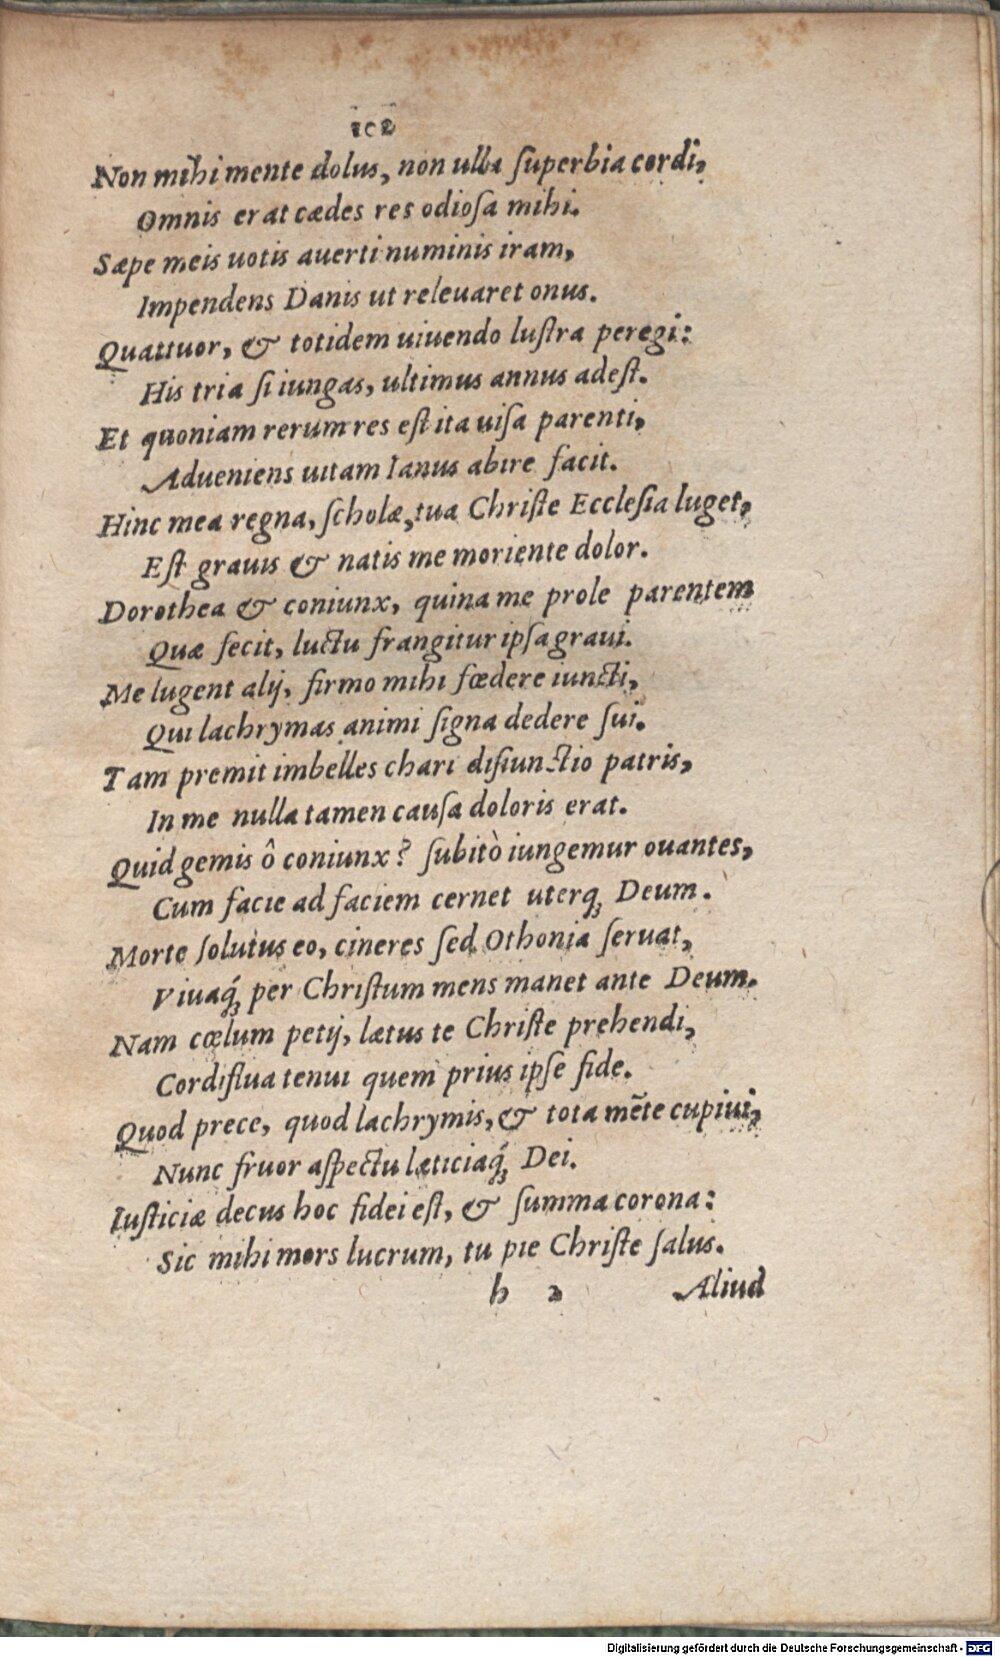 102
Non mihi mente dolus, non ulla ſuperbia cordi,
Omnis erat cædes res odioſa mihi.
Sæpe meis uotis auerti numinis iram,
Impendens Danis ut releuaret onus.
Quattuor, & totidem uiuendo luſtra peregi:
His tria ſi iungas, ultimus annus adeſt.
Et quoniam rerum res eſt ita uiſa parenti,
Adueniens uitam Ianus abire facit.
Hinc mea regna, ſcholæ, tua Chriſte Eccleſia luget,
Eſt grauis & natis me moriente dolor.
Dorothea & coniunx, quina me prole parentem
Quæ fecit, luctu frangitur ipſa graui.
Me lugent alij, firmo mihi fœdere iuncti,
Qui lachrymas animi ſigna dedere ſui.
Tam premit imbelles chari diſiunctio patris,
In me nulla tamen cauſa doloris erat.
Quid gemis ô coniunx? ſubitò iungemur ouantes,
Cum facie ad faciem cernet uterq; Deum.
Morte ſolutus eo, cineres ſed Othonia ſeruat,
Viuaq́; per Chriſtum mens manet ante Deum.
Nam cœlum petij, lætus te Chriſte prehendi,
Cordiflua tenui quem prius ipſe fide.
Quod prece, quod lachrymis, & tota mẽte cupiui,
Nunc fruor aſpectu læticiaq́; Dei.
Iuſticiæ decus hoc fidei eſt, & ſumma corona:
Sic mihi mors lucrum, tu pie Chriſte ſalus.
h 2 Aliud
Digitalisierung gefördert durch die Deutsche Forschungsgemeinschaft - DFG